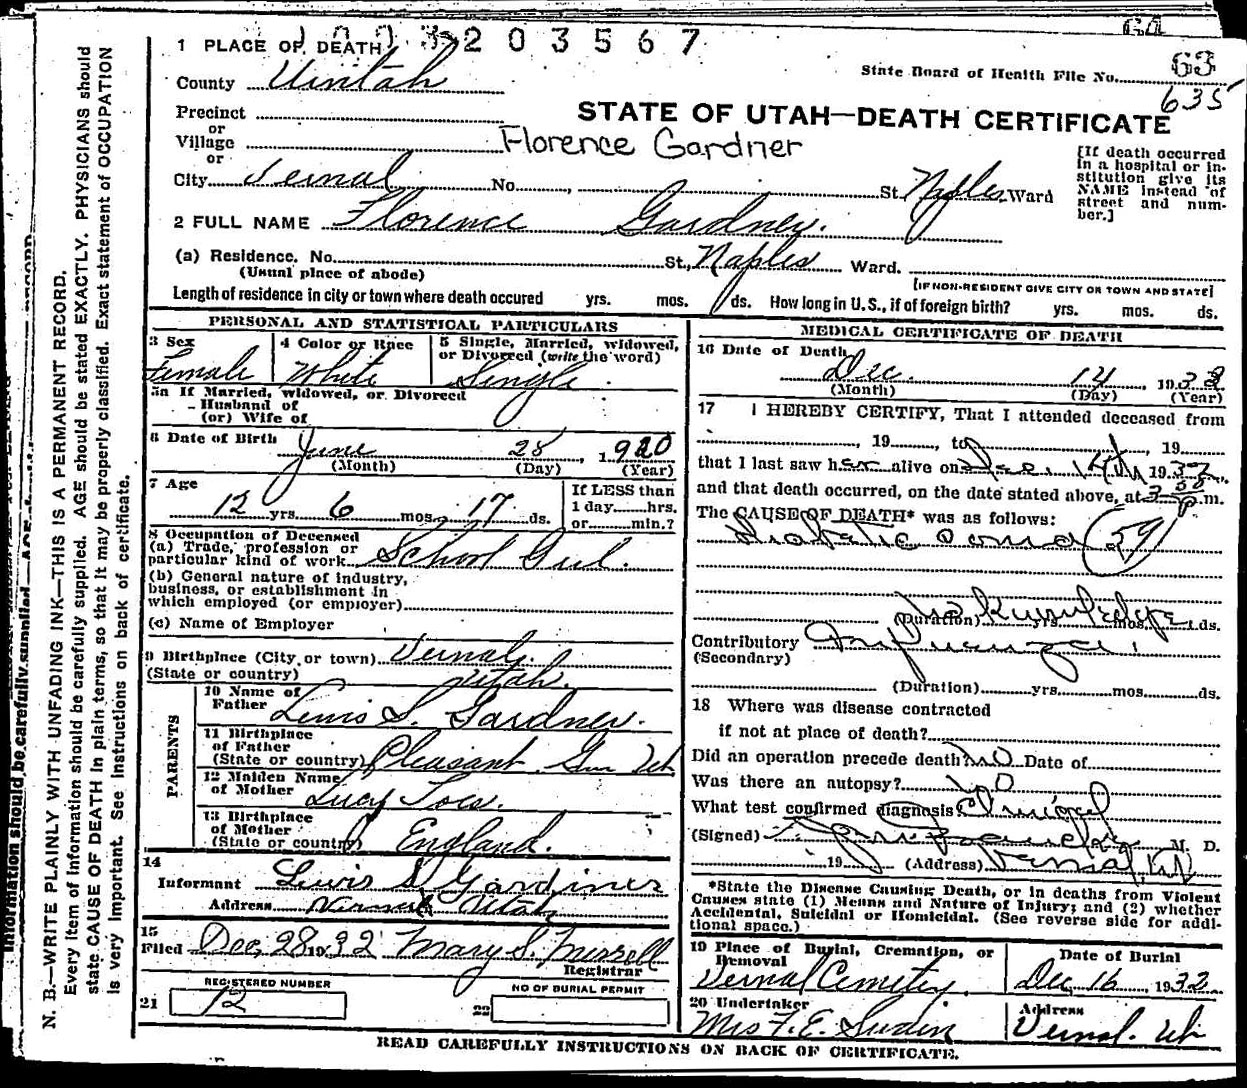 GA
1003203567
1 PLACE OF DEATH
County Uintah
State Board of Health File No. 63
635
Precinct
or
Village
or
STATE OF UTAH—DEATH CERTIFICATE
Florence Gardner
[If death occurred in a hospital or institution give its NAME instead of street and number.]
City Vernal No. , St. Naples Ward
2 FULL NAME Florence Gardner.
(a) Residence. No. St., Naples Ward.
(Usual place of abode)
[IF NON-RESIDENT GIVE CITY OR TOWN AND STATE]
Length of residence in city or town where death occured yrs. mos. ds. How long in U.S., if of foreign birth? yrs. mos. ds.
PERSONAL AND STATISTICAL PARTICULARS
3 Sex Female
4 Color or Race White
5 Single, Married, Widowed, or Divorced (write the word) Single.
5a If Married, Widowed, or Divorced
Husband of
(or) Wife of
6 Date of Birth June 28, 1920
(Month) (Day) (Year)
7 Age 12 yrs. 6 mos. 17 ds.
If LESS than
1 day......hrs.
or......min.?
8 Occupation of Deceased
(a) Trade, profession or
particular kind of work School Girl.
(b) General nature of industry,
business, or establishment in
which employed (or employer)
(c) Name of Employer
9 Birthplace (City or town) Vernal,
(State or country) Utah.
PARENTS
10 Name of
Father Lewis S. Gardner.
11 Birthplace
of Father
(State or country) Pleasant Utah
12 Maiden Name
of Mother Lucy
13 Birthplace
of Mother
(State or country) England.
14
Informant Lewis S. Gardiner
Address Vernal Utah
15
Filed Dec. 28 1932 Mary S.
Registrar
REGISTERED NUMBER
21 12
NO OF BURIAL PERMIT
22
MEDICAL CERTIFICATE OF DEATH
16 Date of Death
Dec. 14, 1932
(Month) (Day) (Year)
17 I HEREBY CERTIFY, That I attended deceased from
, 19 , to , 19
that I last saw her alive on Dec. 14th 1932,
and that death occurred, on the date stated above, at 3 50 p.m.
The CAUSE OF DEATH* was as follows:
Diabetic Coma 59
(Duration) yrs. mos. ds. No Knowledge
Contributory Influenza.
(Secondary)
(Duration) yrs. mos. ds.
18 Where was disease contracted
if not at place of death?
Did an operation precede death? No Date of
Was there an autopsy? No
What test confirmed diagnosis Clinical
(Signed) M. D.
19 (Address) Vernal, Ut
*State the Disease Causing Death, or in deaths from Violent
Causes state (1) Means and Nature of Injury; and (2) whether
Accidental, Suicidal or Homicidal. (See reverse side for addi-
tional space.)
19 Place of Burial, Cremation, or
Removal
Vernal Cemetery.
Date of Burial
Dec 16, 1932
20 Undertaker
Mrs F. E.
Address
Vernal. Ut
READ CAREFULLY INSTRUCTIONS ON BACK OF CERTIFICATE.
N. B.—WRITE PLAINLY WITH UNFADING INK—THIS IS A PERMANENT RECORD.
Every item of information should be carefully supplied. AGE should be stated EXACTLY. PHYSICIANS should
state CAUSE OF DEATH in plain terms, so that it may be properly classified. Exact statement of OCCUPATION
is very important. See instructions on back of certificate.
information should be carefully supplied